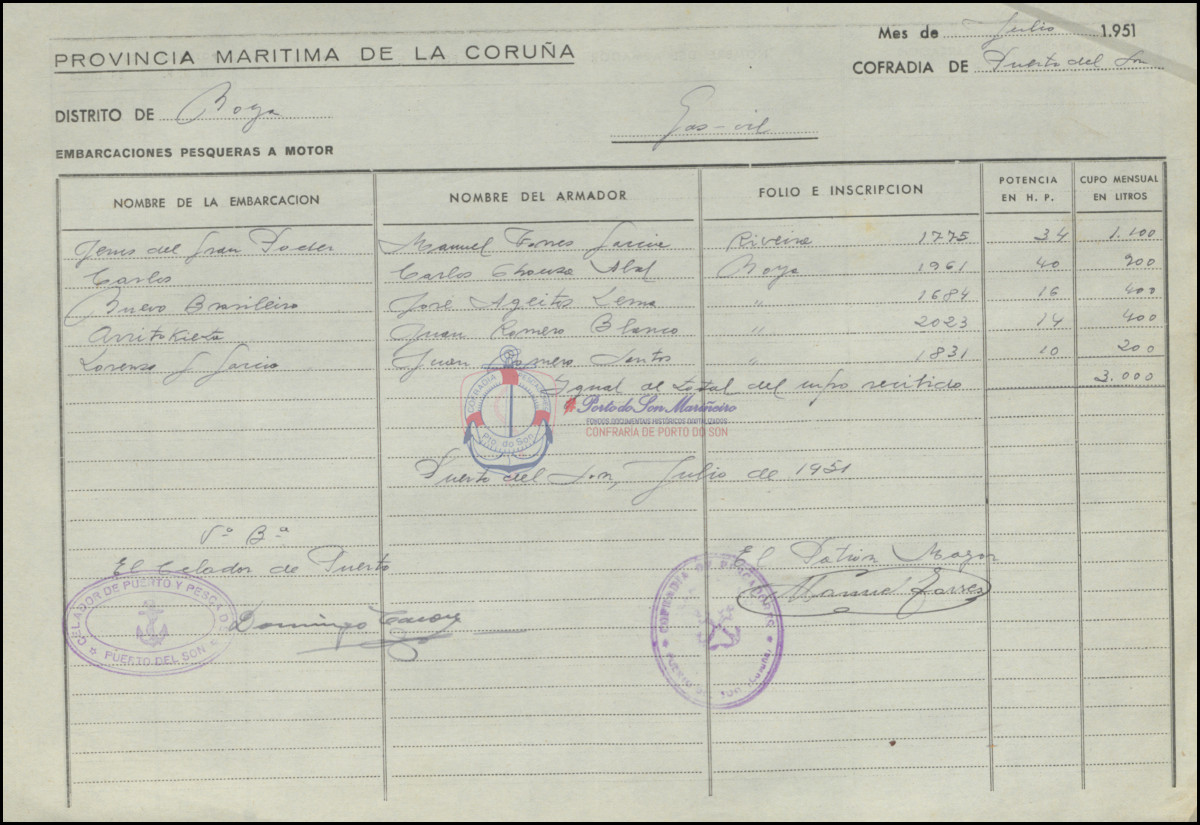 Mes de Julio 1.951
PROVINCIA MARITIMA DE LA CORUÑA
COFRADIA DE Puerto del Son
DISTRITO DE Noya
Gas-oil
EMBARCACIONES PESQUERAS A MOTOR
NOMBRE DE LA EMBARCACION NOMBRE DEL ARMADOR FOLIO E INSCRIPCION POTENCIA EN H. P. CUPO MENSUAL EN LITROS
Jesus del Gran Poder Manuel Torres Garcia Riveira 1775 34 1.100
Carlos Carlos Chouza Abal Noya 1961 40 900
Nuevo Brasileiro José Ageitos Lema " 1684 16 400
Arritokieta Juan Romero Blanco " 2023 14 400
Lorenzo y Garcia Juan Romero Santos " 1831 10 200
Ygual al total del cupo recibido 3.000
COFRADIA PESCADORES
Pto. do Son
Porto do Son Mariñeiro
FONDOS DOCUMENTAIS HISTÓRICOS DIXITALIZADOS
CONFRARÍA DE PORTO DO SON
Puerto del Son, Julio de 1951
Vº Bª
El Celador de Puerto
El Patrón Mayor
Manuel Torres
CELADOR DE PUERTO Y PESCA D
PUERTO DEL SON
Domingo
COFRADIA DE PESCADORES
PUERTO DEL SON